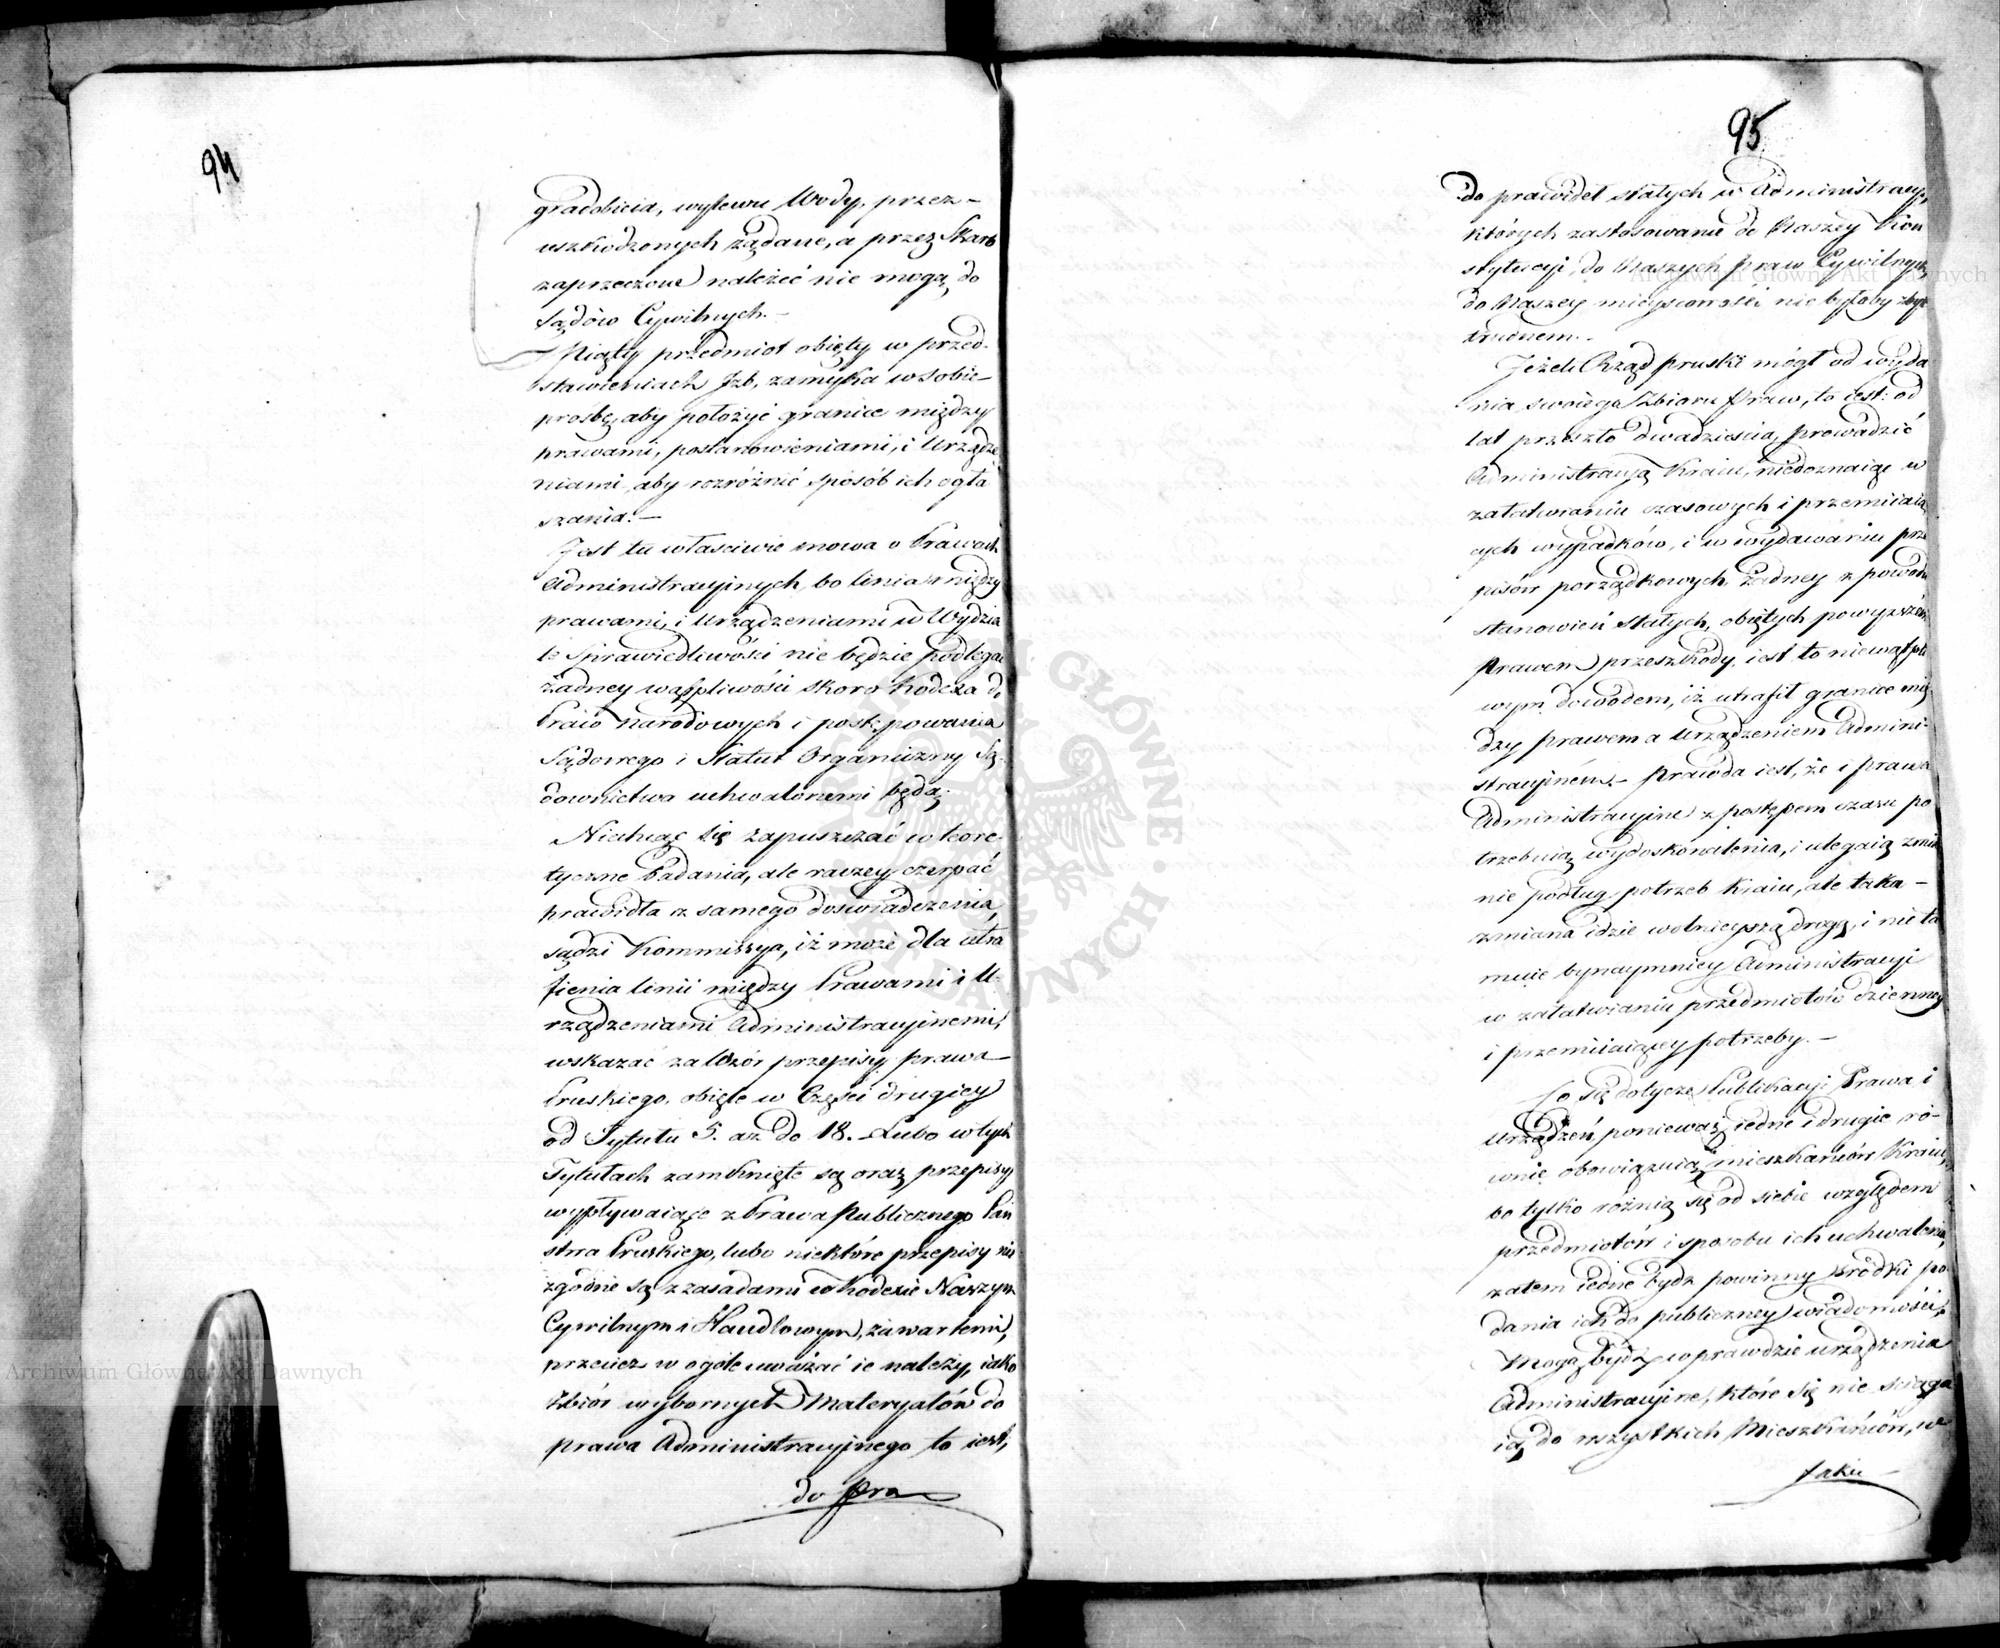 94
gradobicia, wylewu Wody, przez
uszkodzonych żądane, a przez Skarb
zaprzeczone należeć nie mogą do
Sądów Cywilnych.—
Piąty przedmiot obięty w przed-
stawieniach Izb, zamyka w sobie
prośbę, aby położyć granice między
prawami, postanowieniami, i Urządze
niami, aby rozróżnić sposób ich ogła
szania.—
Jest tu właściwie mowa o Prawach
Administracyinych, bo linia między
prawami, i Urządzeniami w Wydzia
le Sprawiedliwości nie będzie podlegać
żadney wątpliwości skoro Kodexa
Praw Narodowych i postępowania
Sądowego i Statut Organiczny Są-
downictwa uchwalonemi będą.
Niechcąc się zapuszczać w teore-
tyczne badania, ale raczey czerpać
prawidła z samego doświadczenia,
sądzi Kommissya, iż może dla utra
fienia linii między Prawami i U-
rządzeniami Administracyinemi,
wskazać za Wzór przepisy prawa
Pruskiego, obięte w Części drugiey
od Tytułu 5. aż do 18. Lubo w tych
Tytułach zamknięte są oraz przepisy
wypływaiące z Prawa Publicznego Pań
stwa Pruskiego, lubo niektóre przepisy nie
zgodne są z zasadami w Kodexie Naszym
Cywilnym i Handlowym, zawartemi,
przecież w ogóle uważać ie należy, iako
Zbiór wybornych Materyałów do
prawa Administracyinego to iest,
do pra
95
do prawideł stałych w Administracyi,
których zastosowanie do Naszey Kon
stytucyi, do Naszych praw Cywilnych
do Naszey mieyscowości nie byłoby zbyt
trudnem.
Jeżeli Rząd pruski mógł od wyda
nia swoiego Zbioru Praw, to iest: od
lat przeszło dwadzieścia, prowadzić
Administracyą Kraiu, niedoznaiąc w
załatwianiu czasowych i przemiiaią
cych wypadków, i w wydawaniu prze
pisów porządkowych żadney z powodu
stanowień stałych, obiętych powyższém
Prawem przeszkody, iest to niewątpli
wym dowodem, iż utrafił granice mię
dzy prawem a Urządzeniem Admini-
stracyiném. Prawda iest, że i prawa
Administracyine z postępem czasu po
trzebuią wydoskonalenia, i ulegaią zmia
nie podług potrzeb Kraiu, ale taka
zmiana idzie wolnieyszą drogą, i nie ta
muie bynaymniey Administracyi
w załatwianiu przedmiotów dzienney
i przemiiaiącey potrzeby.—
Co się dotycze Publikacyi Prawa i
Urządzeń, ponieważ iedne i drugie ró-
wnie obowiązuią mieszkańców Kraiu,
bo tylko różnią się od siebie względem
przedmiotów i sposobu ich uchwalenia,
zatem iedne bydź powinny środki po-
dania ich do publiczney wiadomości.
Mogą bydź wprawdzie urządzenia
Administracyine, które się nie ściąga
ią do wszystkich Mieszkańców, w
takie
Archiwum Główne Akt Dawnych
Archiwum Główne Akt Dawnych
ARCHIWUM GŁÓWNE AKT DAWNYCH